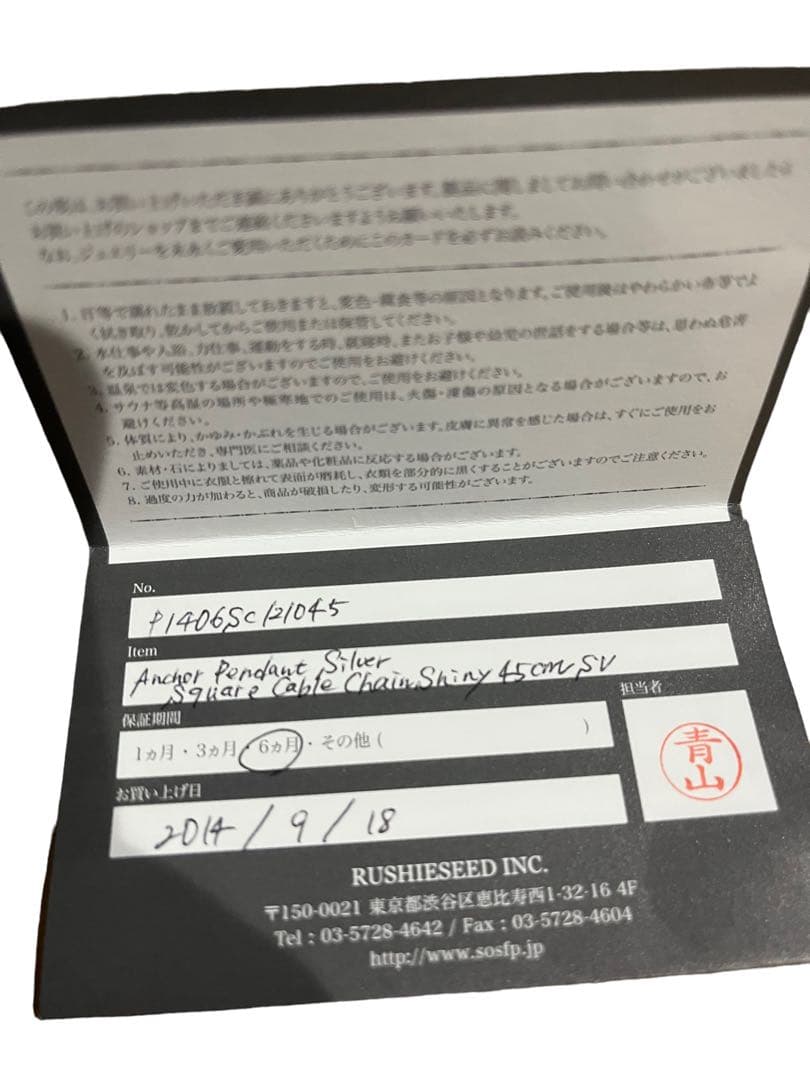 この度は、お買い上げいただき誠にありがとうございます。製品に関しましてお問い合わせがございましたら
お買い上げのショップまでご連絡くださいますようお願いいたします。
なお、ジュエリーを末永くご愛用いただくためにこのカードを必ずお読みください。
1. 汗等で濡れたまま放置しておきますと、変色・腐食等の原因となります。ご使用後はやわらかい布等でよ
く拭き取り、乾かしてからご使用または保管してください。
2. 水仕事や入浴、力仕事、運動をする時、就寝時、またお子様や幼児の世話をする場合等は、思わぬ危害
を及ぼす可能性がございますのでご使用をお避けください。
3. 温泉では変色する場合がございますので、ご使用をお避けください。
4. サウナ等高温の場所や極寒地でのご使用は、火傷・凍傷の原因となる場合がございますので、お
避けください。
5. 体質により、かゆみ・かぶれを生じる場合がございます。皮膚に異常を感じた場合は、すぐにご使用をお
止めいただき、専門医にご相談ください。
6. 素材・石によりましては、薬品や化粧品に反応する場合がございます。
7. ご使用中に衣服と擦れて表面が磨耗し、衣類を部分的に黒くすることがございますのでご注意ください。
8. 過度の力が加わると、商品が破損したり、変形する可能性がございます。
No.
P1406SC121045
Item
Anchor Pendant Silver
Square Cable Chain Shiny 45cm SV
保証期間
担当者
1ヵ月・3ヵ月・6ヵ月・その他( )
青山
お買い上げ日
2014/9/18
RUSHIESEED INC.
〒150-0021 東京都渋谷区恵比寿西1-32-16 4F
Tel : 03-5728-4642 / Fax : 03-5728-4604
http://www.sosfp.jp